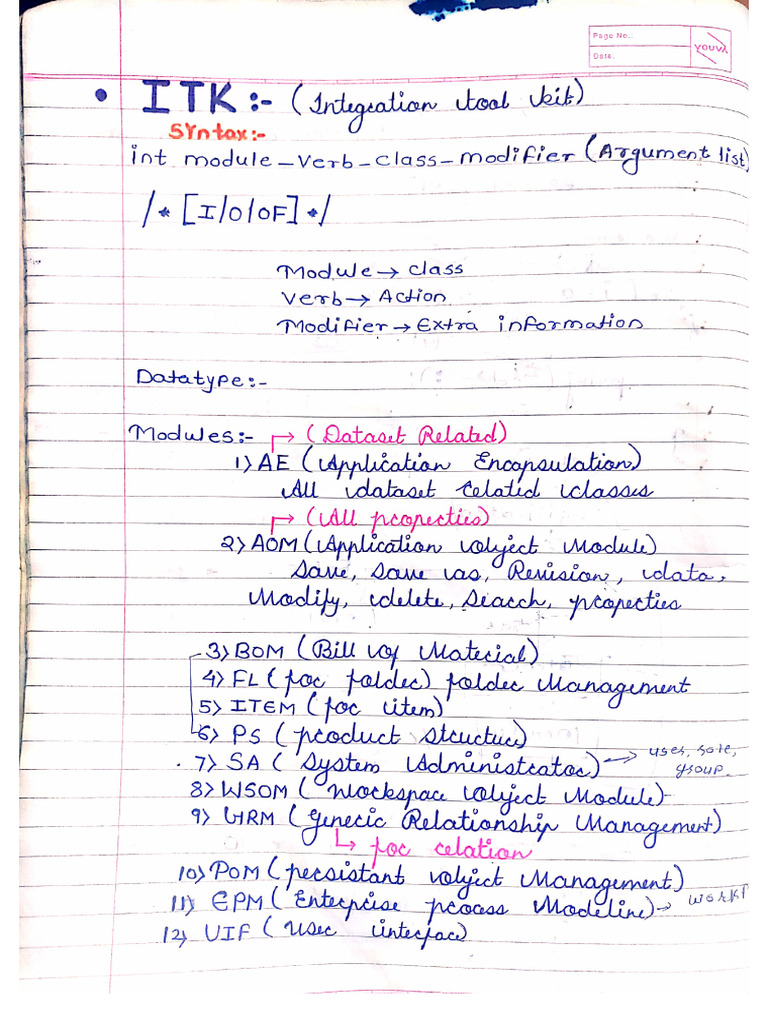 Page No.:
Date.
YOUVA
• ITK:- (Integration tool kit)
Syntax:-
int module-verb-class-modifier (Argument list)
/* [I/O/OF] */
Module → class
Verb → Action
Modifier → Extra information
Datatype:-
Modules:- → (Dataset Related)
1) AE (Application Encapsulation)
All dataset related classes
→ (All properties)
2) AOM (Application object Module)
Save, save as, Revision, data,
Modify, delete, search, properties
3) BOM (Bill of Material)
4) FL (for folder) folder Management
5) ITEM (for item)
6) PS (product structure)
7) SA (System Administrator) → user, role,
group.
8) WSOM (Workspace object Module)
9) GRM (Generic Relationship Management)
↳ for relation
10) POM (persistant object Management)
11) EPM (Enterprise process Modeline) → workf
12) UIF (User interface)